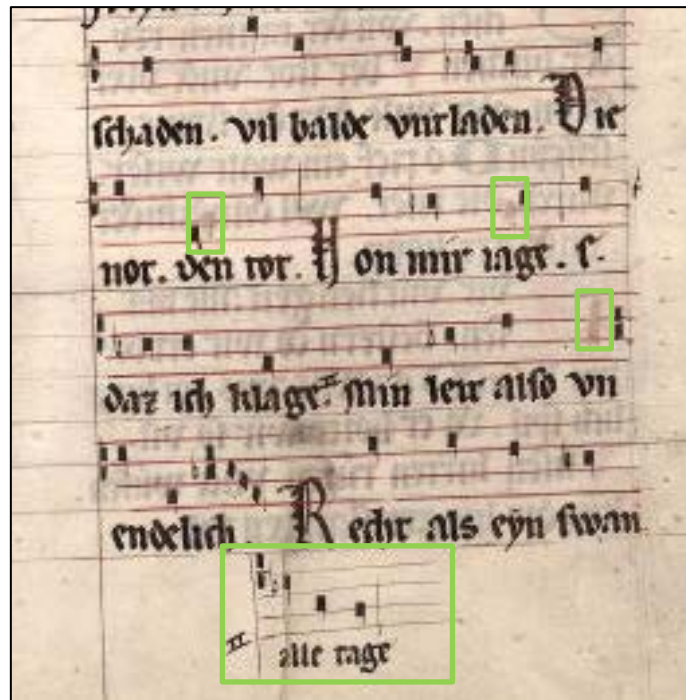 schaden. vil balde vntladen. Die
not. den tot. Von mir iage. s.
daz ich klage. Min leit also vn
endelich. Recht als eyn swan
II
alle tage